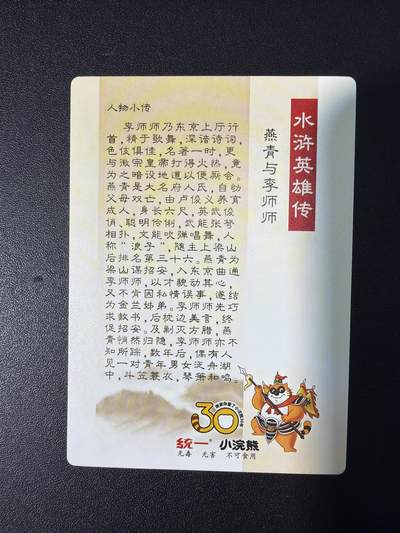 水浒英雄传
燕青与李师师
人物小传
李师师乃东京上厅行
首，精于歌舞，深谙诗词，
色伎俱佳，名著一时，更
与徽宗皇帝打得火热，竟
为之暗设地道以便厮会。
燕青是大名府人氏，自幼
父母双亡，由卢俊义养育
成人，身长六尺，英武俊
俏、聪明伶俐，武能张弩
相扑，文能吹弹唱舞，人
称“浪子”，随主上梁山
后排名第三十六。燕青为
梁山谋招安，入东京曲通
李师师，以才貌动其心，
又不肯因私情误事，遂结
为金兰姊弟。李师师先巧
求赦书，后枕边美言，终
促招安。及剿灭方腊，燕
青悄然归隐，李师师亦不
知所踪，数年后，偶有人
见一对青年男女泛舟湖
中，斗笠蓑衣，琴箫和鸣。
30
统一® 小浣熊
无毒 无害 不可食用